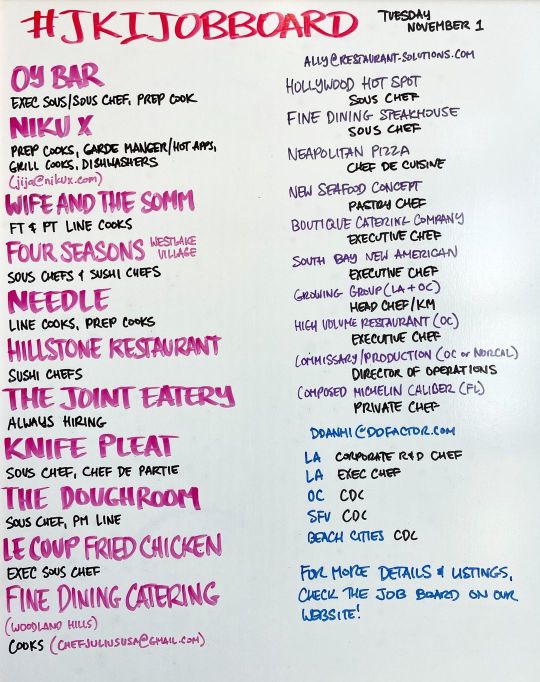 #JKIJOBBOARD
TUESDAY
NOVEMBER 1
OY BAR
EXEC SOUS/SOUS CHEF, PREP COOK
NIKU X
PREP COOKS, GARDE MANGER/HOT APPS,
GRILL COOKS, DISHWASHERS
(jija@nikux.com)
WIFE AND THE SOMM
FT & PT LINE COOKS
FOUR SEASONS WESTLAKE
VILLAGE
SOUS CHEFS & SUSHI CHEFS
NEEDLE
LINE COOKS, PREP COOKS
HILLSTONE RESTAURANT
SUSHI CHEFS
THE JOINT EATERY
ALWAYS HIRING
KNIFE PLEAT
SOUS CHEF, CHEF DE PARTIE
THE DOUGHROOM
SOUS CHEF, PM LINE
LE COUP FRIED CHICKEN
EXEC SOUS CHEF
FINE DINING CATERING
(WOODLAND HILLS)
COOKS (CHEFJULIUSUSA@GMAIL.COM)
ALLY@RESTAURANT-SOLUTIONS.COM
HOLLYWOOD HOT SPOT
SOUS CHEF
FINE DINING STEAKHOUSE
SOUS CHEF
NEAPOLITAN PIZZA
CHEF DE CUISINE
NEW SEAFOOD CONCEPT
PASTRY CHEF
BOUTIQUE CATERING COMPANY
EXECUTIVE CHEF
SOUTH BAY NEW AMERICAN
EXECUTIVE CHEF
GROWING GROUP (LA + OC)
HEAD CHEF/KM
HIGH VOLUME RESTAURANT (OC)
EXECUTIVE CHEF
COMMISSARY/PRODUCTION (OC or NORCAL)
DIRECTOR OF OPERATIONS
COMPOSED MICHELIN CALIBER (FL)
PRIVATE CHEF
DDANHI@DDFACTOR.COM
LA CORPORATE R&D CHEF
LA EXEC CHEF
OC CDC
SFV CDC
BEACH CITIES CDC
FOR MORE DETAILS & LISTINGS,
CHECK THE JOB BOARD ON OUR
WEBSITE!